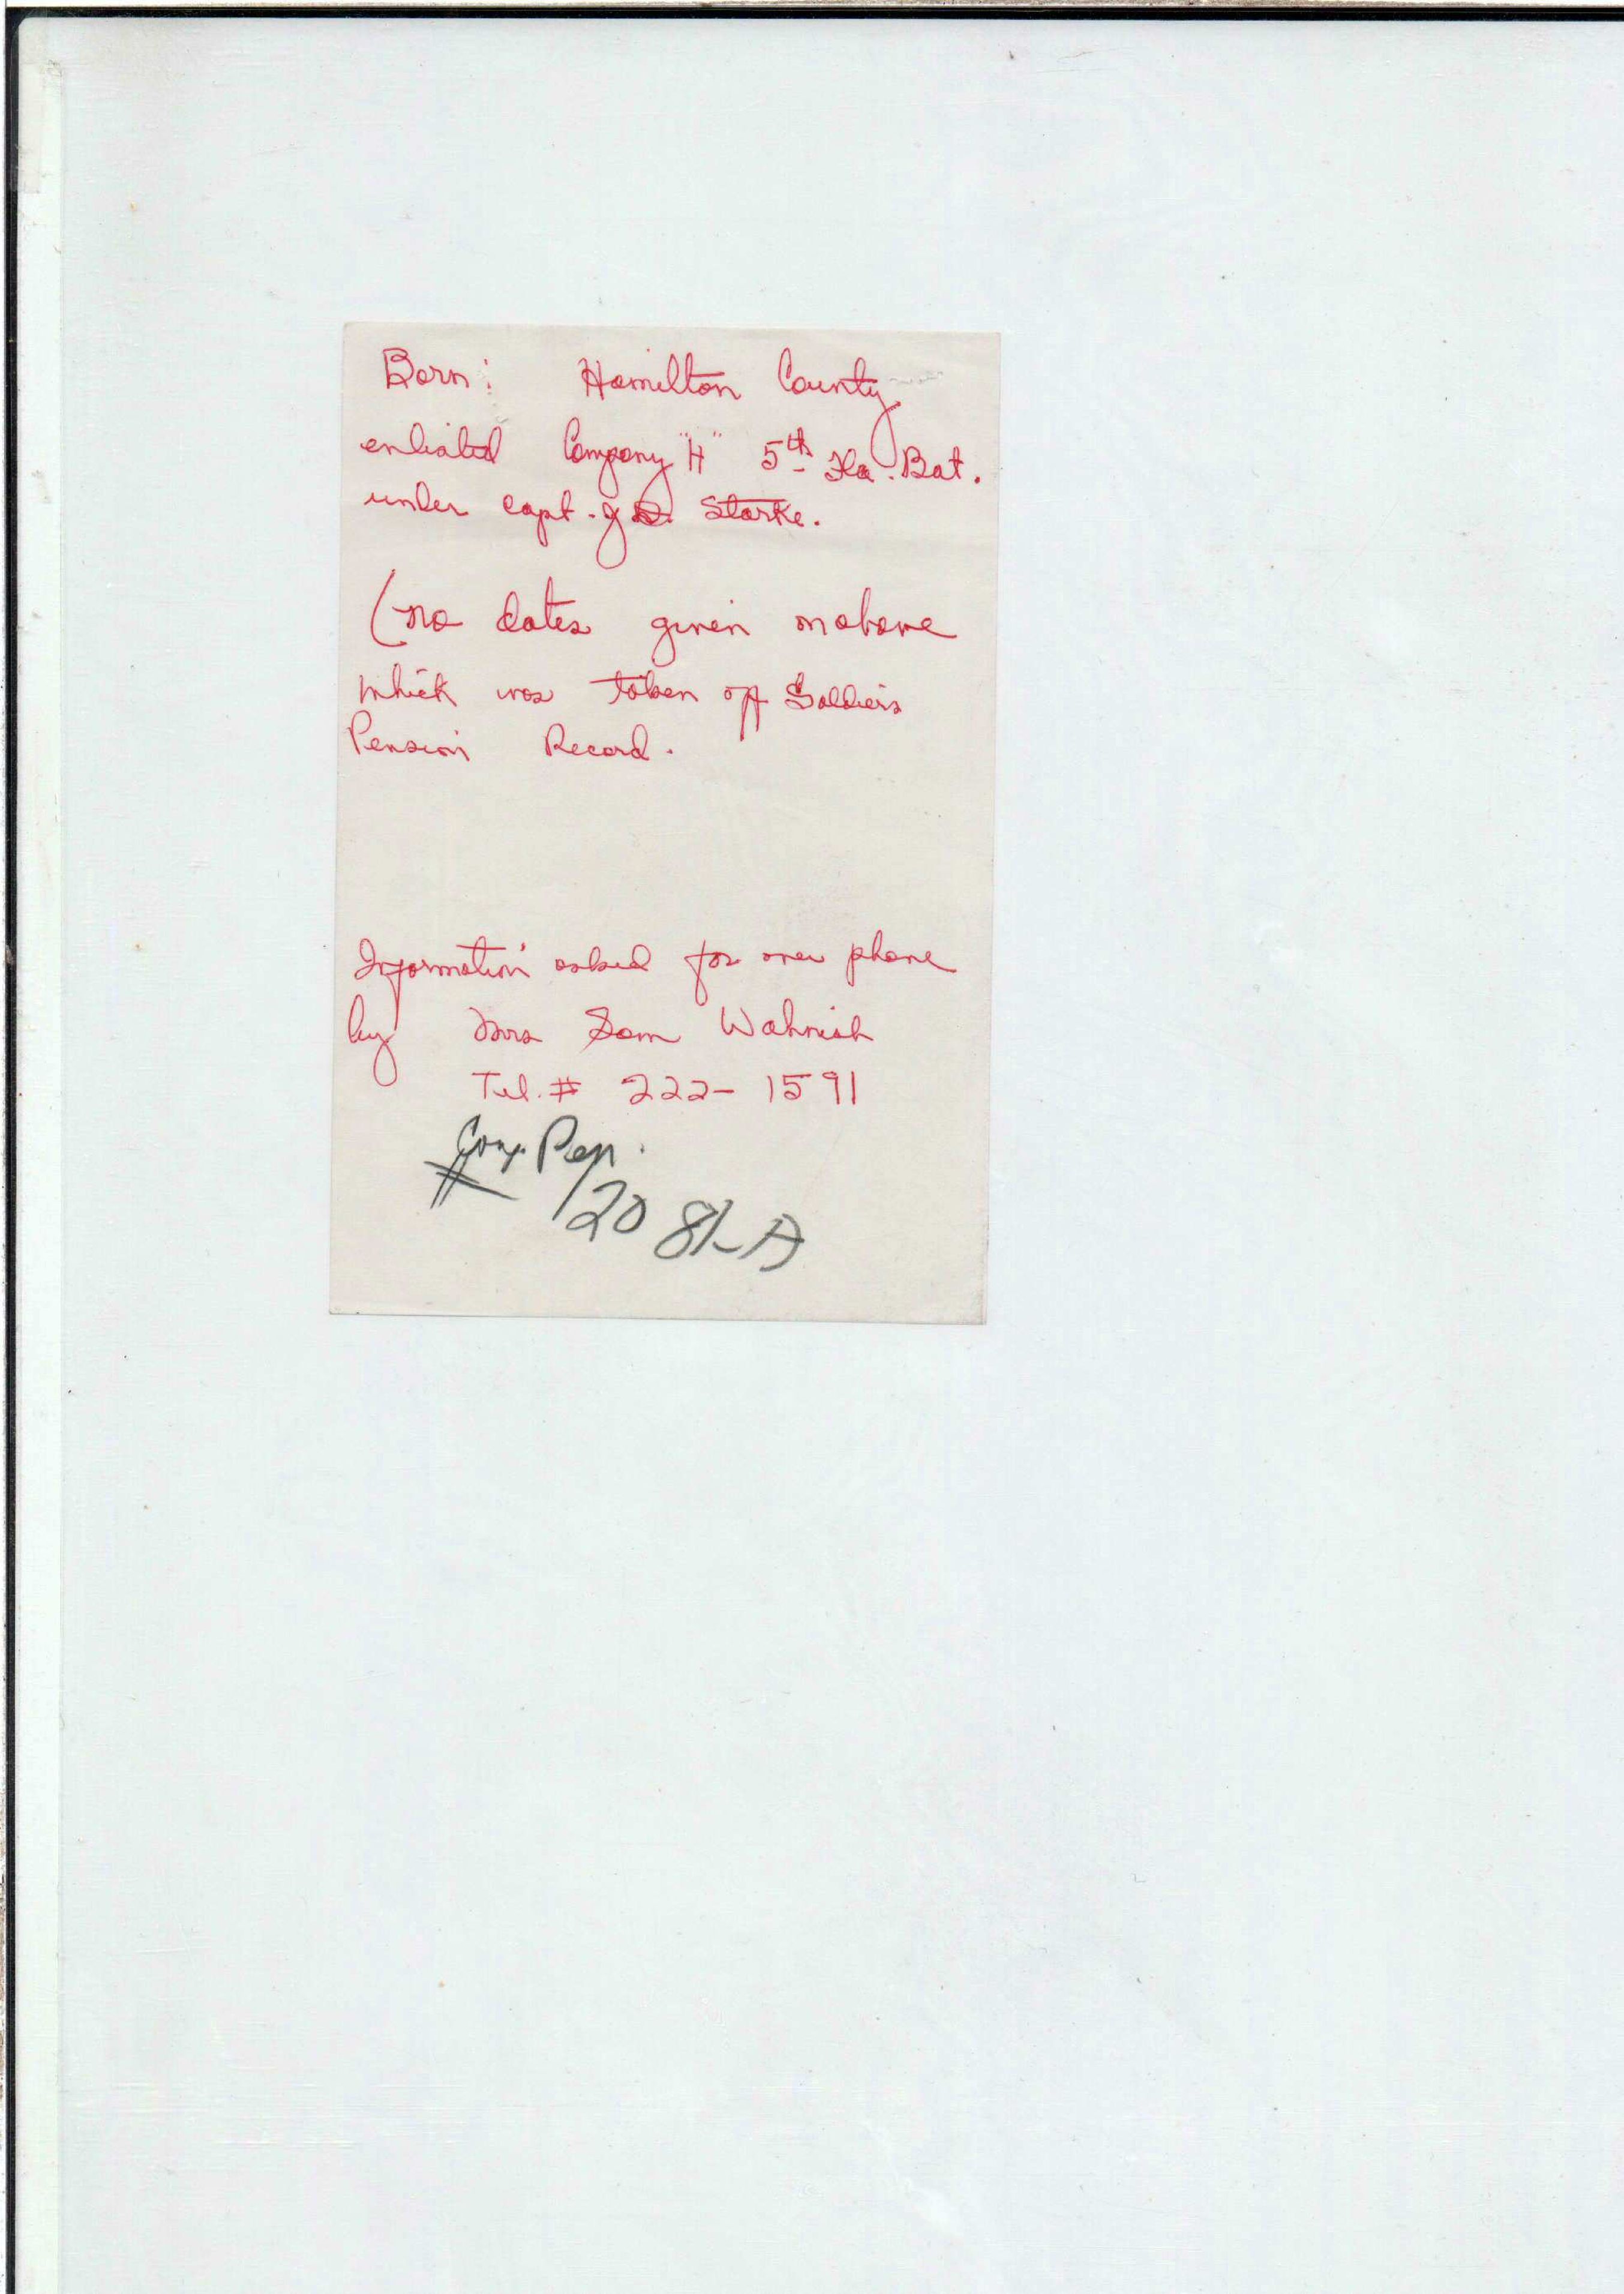 Born: Hamilton County
enlisted Company "H" 5th Fla. Bat.
under capt. Starke.
(no dates given on above
which was taken off Soldiers
Pension Record.
Information asked for over phone
by Mrs Sam Wahnish
Tel. # 222-1591
Pen.
2081-A